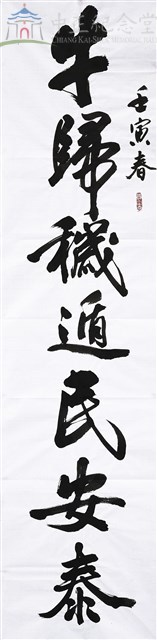 中正紀念堂
CHIANG KAI-SHEK MEMORIAL
壬寅春
牛歸穢遁民安泰